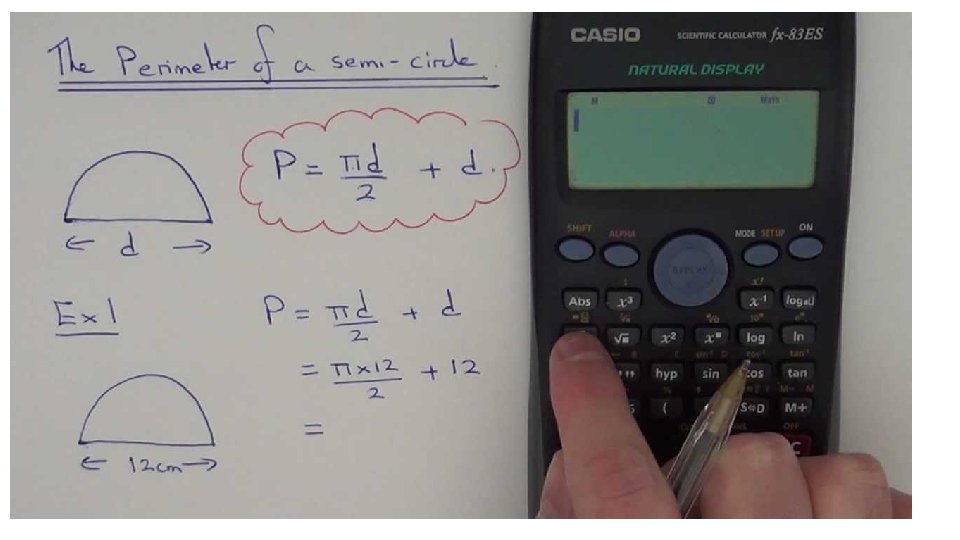 The Perimeter of a semi-circle.
P = πd/2 + d.
← d →
Ex 1
P = πd/2 + d
= π×12/2 + 12
=
← 12cm →
CASIO SCIENTIFIC CALCULATOR fx-83ES
NATURAL DISPLAY
M D Math
SHIFT ALPHA MODE SETUP ON
REPLAY
Abs x³ x⁻¹ log
√ x² log ln
hyp sin cos tan
( S⇔D M+
OFF
C